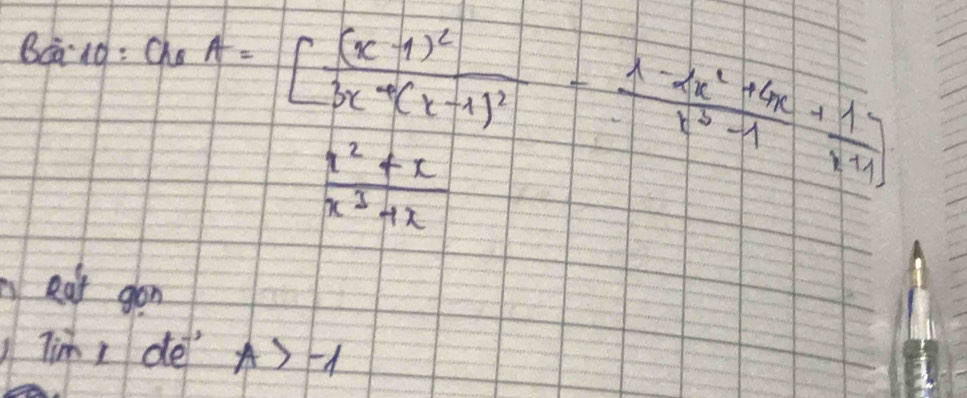 Bài 10 : Cho A = [ (x - 1)² / 3x + (x - 1)² - 1 - 2x² + 4x / x³ - 1 + 1 / x + 1 ]
x² + x / x³ + x
Rút gọn
Tìm x để A > -1